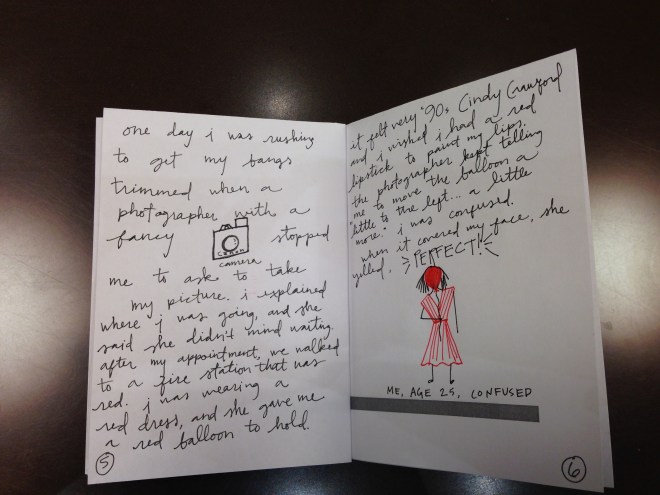 one day i was rushing
to get my bangs
trimmed when a
photographer with a
fancy stopped
Canon
camera
me to ask to take
my picture. i explained
where i was going, and she
said she didn't mind waiting.
after my appointment, we walked
to a fire station that was
red. i was wearing a
red dress, and she gave me
a red balloon to hold.
5
it felt very '90s Cindy Crawford
and i wished i had a red
lipstick to paint my lips.
the photographer kept telling
me to move the balloon a
"little to the left... a little
more." i was confused.
when it covered my face, she
yelled, PERFECT!
ME, AGE 25, CONFUSED
6